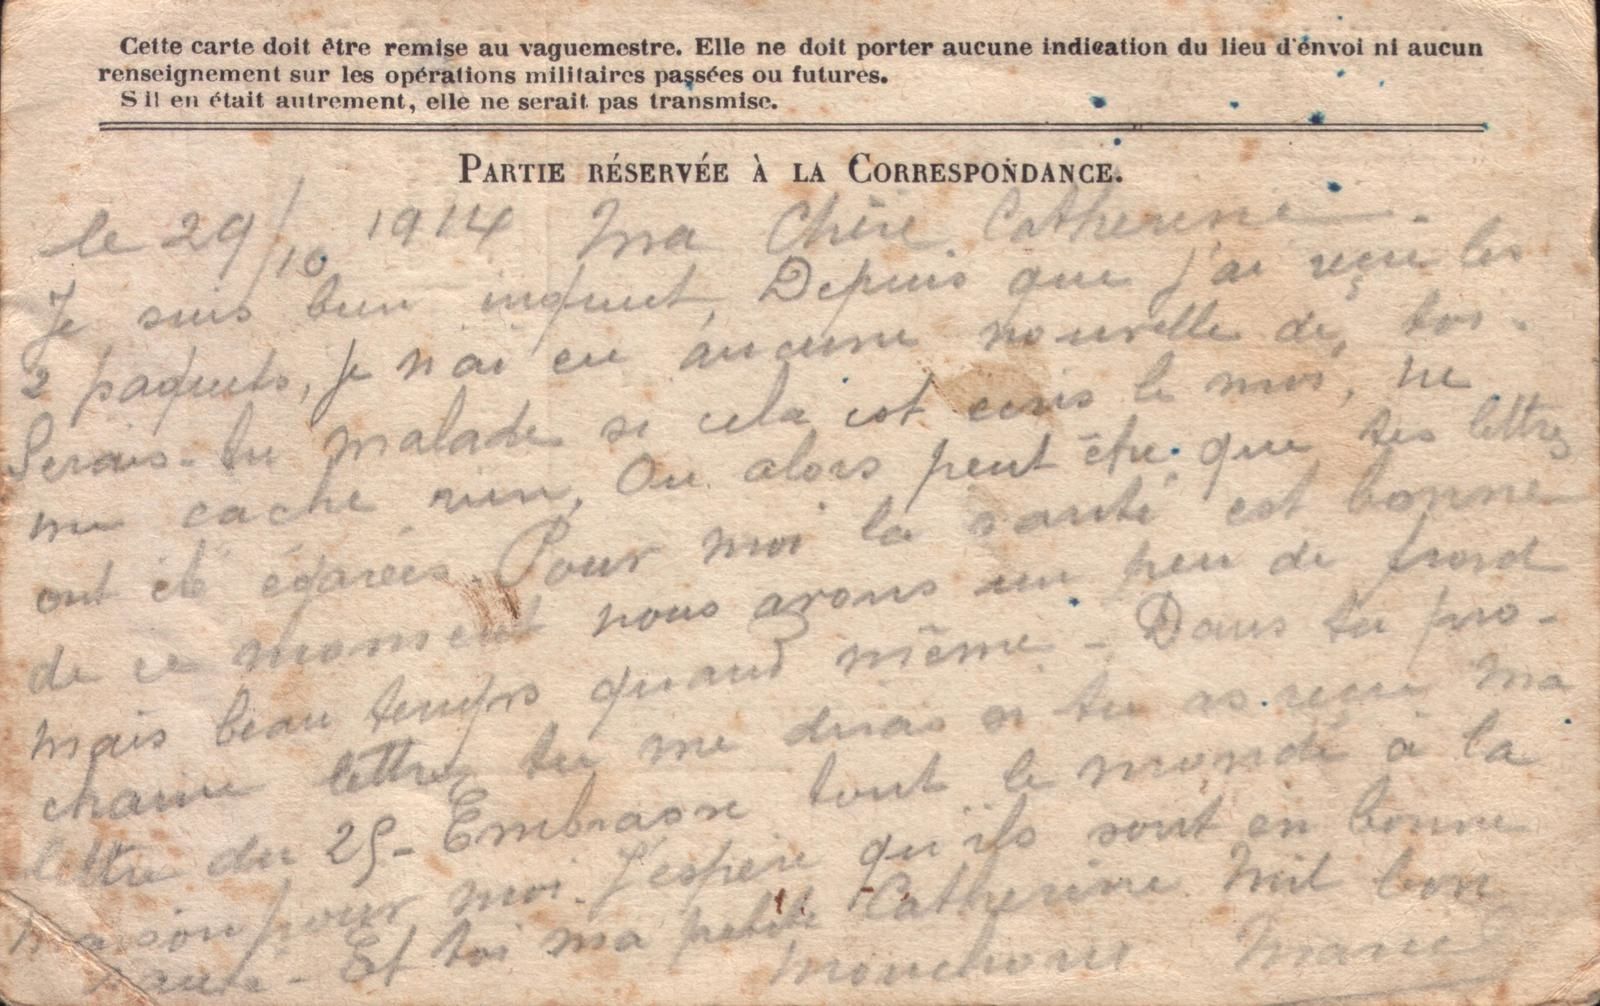 Cette carte doit être remise au vaguemestre. Elle ne doit porter aucune indication du lieu d'envoi ni aucun
renseignement sur les opérations militaires passées ou futures.
S il en était autrement, elle ne serait pas transmise.
PARTIE RÉSERVÉE À LA CORRESPONDANCE.
le 29/10 1914 Ma Chère Catherine.
Je suis bien inquiet, Depuis que j'ai reçu les
2 paquets, je n'ai eu aucune nouvelle de toi.
Serais-tu malade si cela est ecris le moi, ne
me cache rien, Ou alors peut être que tes lettres
ont été égarées. Pour moi la santé est bonne
de ce moment nous avons un peu de froid
mais beau temps quand même - Dans ta pro-
chaine lettre tu me diras si tu as recu ma
lettre du 25- Embrasse tout le monde à la
maison pour moi. J'espère qu'ils sont en bonne
santé - Et toi ma petite Catherine Mil bon